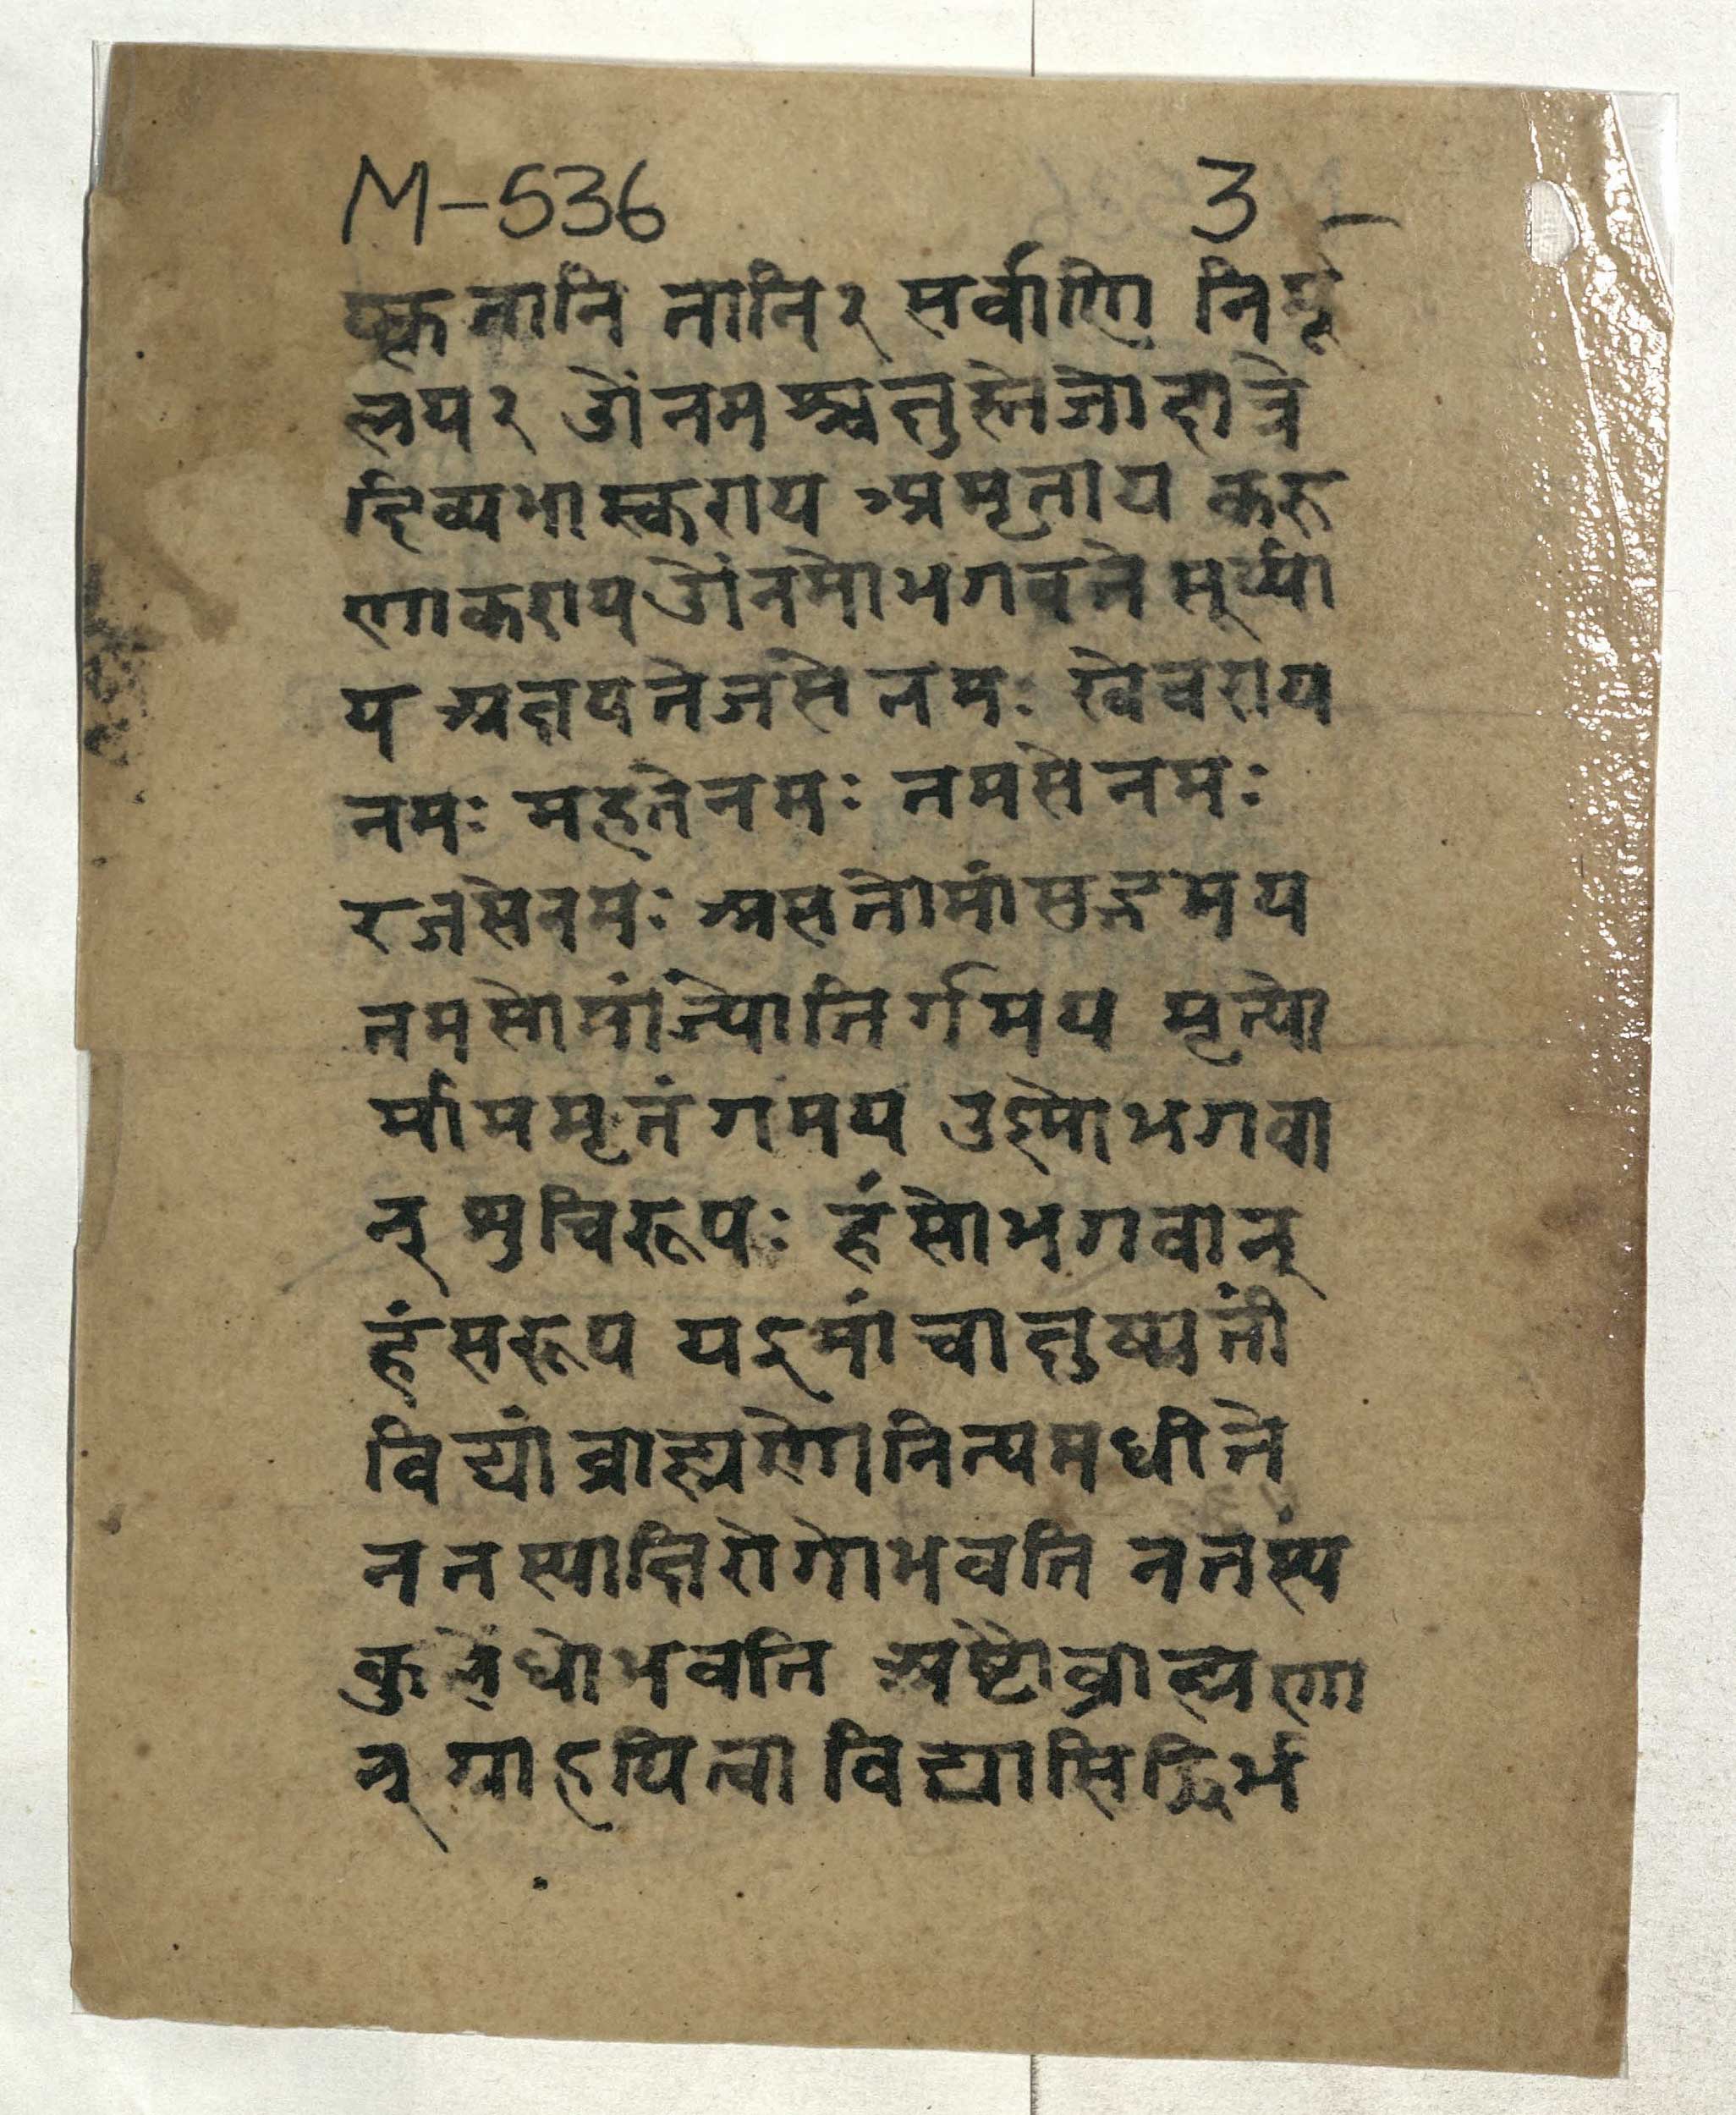 M-536 3 -
ष्कृतानि तानि२ सर्वाणि निर्मू
लय२ ओंनमश्चक्षुस्तेजोदात्रे
दिव्यभास्कराय अमृताय करु
णाकराय ओंनमोभगवते सूर्य्या
य अक्षयतेजसे नमः खेचराय
नमः महतेनमः तमसेनमः
रजसेनमः असतोमांसद्गमय
तमसोमांज्योतिर्गमय मृत्यो
र्मामममृतंगमय उष्मोभगवा
न् शुचिरूपः हंसोभगवान्
हंसरूप यइमांचाक्षुष्मतीं
विद्यां ब्राह्मणोनित्यमधीते
नतस्याक्षिरोगोभवति नतस्य
कुलेंधोभवति अष्टौब्राह्मणा
न् ग्राहयित्वा विद्यासिद्धिर्भ